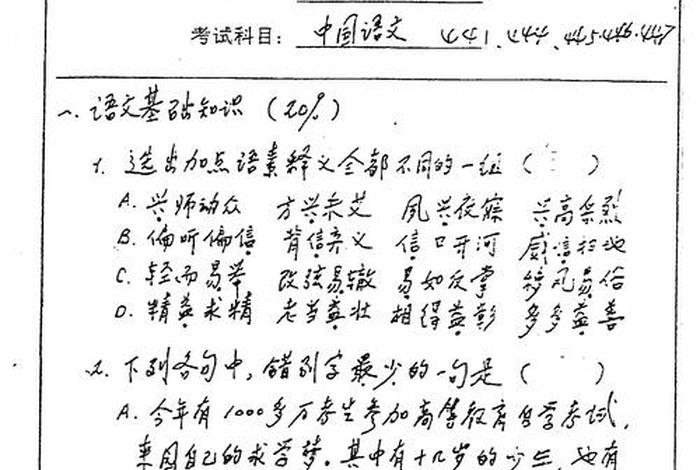 考试科目: 中国语文 441、444、445.446.447
一、语文基础知识 (20%)
1. 选出加点语素释义全部不同的一组 ( )
A. 兴师动众 方兴未艾 夙兴夜寐 兴高采烈
B. 偏听偏信 背信弃义 信口开河 威信扫地
C. 轻而易举 改弦易辙 易如反掌 移风易俗
D. 精益求精 老当益壮 相得益彰 多多益善
2. 下列各句中, 错别字最少的一句是 ( )
A. 今年有1000多万考生参加高等教育自学考试,
来圆自己的求学梦。其中有十几岁的少年, 也有